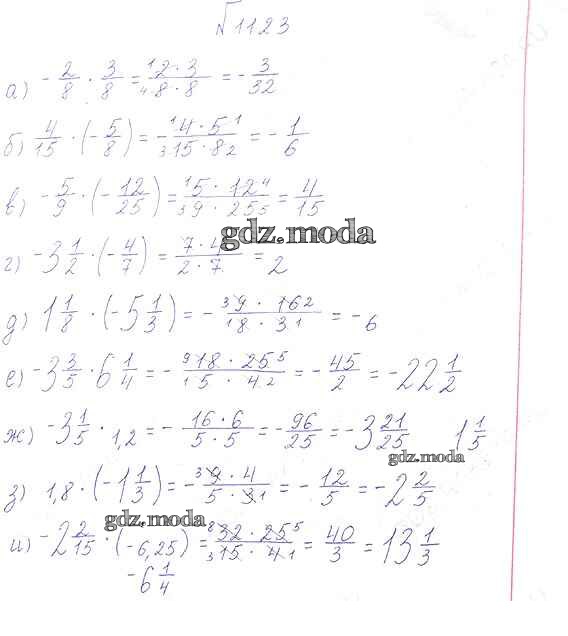 √1123
а) -2/8 · 3/8 = 2·3/8·8 = -3/32
б) 4/15 · (-5/8) = -4·5/15·8 = -1/6
в) -5/9 · (-12/25) = 5·12/9·25 = 4/15
г) -3 1/2 · (-4/7) = 7·4/2·7 = 2
gdz.moda
д) 1 1/8 · (-5 1/3) = -9·16/8·3 = -6
е) -3 3/5 · 6 1/4 = -18·25/5·4 = -45/2 = -22 1/2
ж) -3 1/5 · 1,2 = -16·6/5·5 = -96/25 = -3 21/25 1 1/5
gdz.moda
з) 1,8 · (-1 1/3) = -9·4/5·3 = -12/5 = -2 2/5
gdz.moda
и) -2 2/15 · (-6,25) = 32·25/15·4 = 40/3 = 13 1/3
-6 1/4